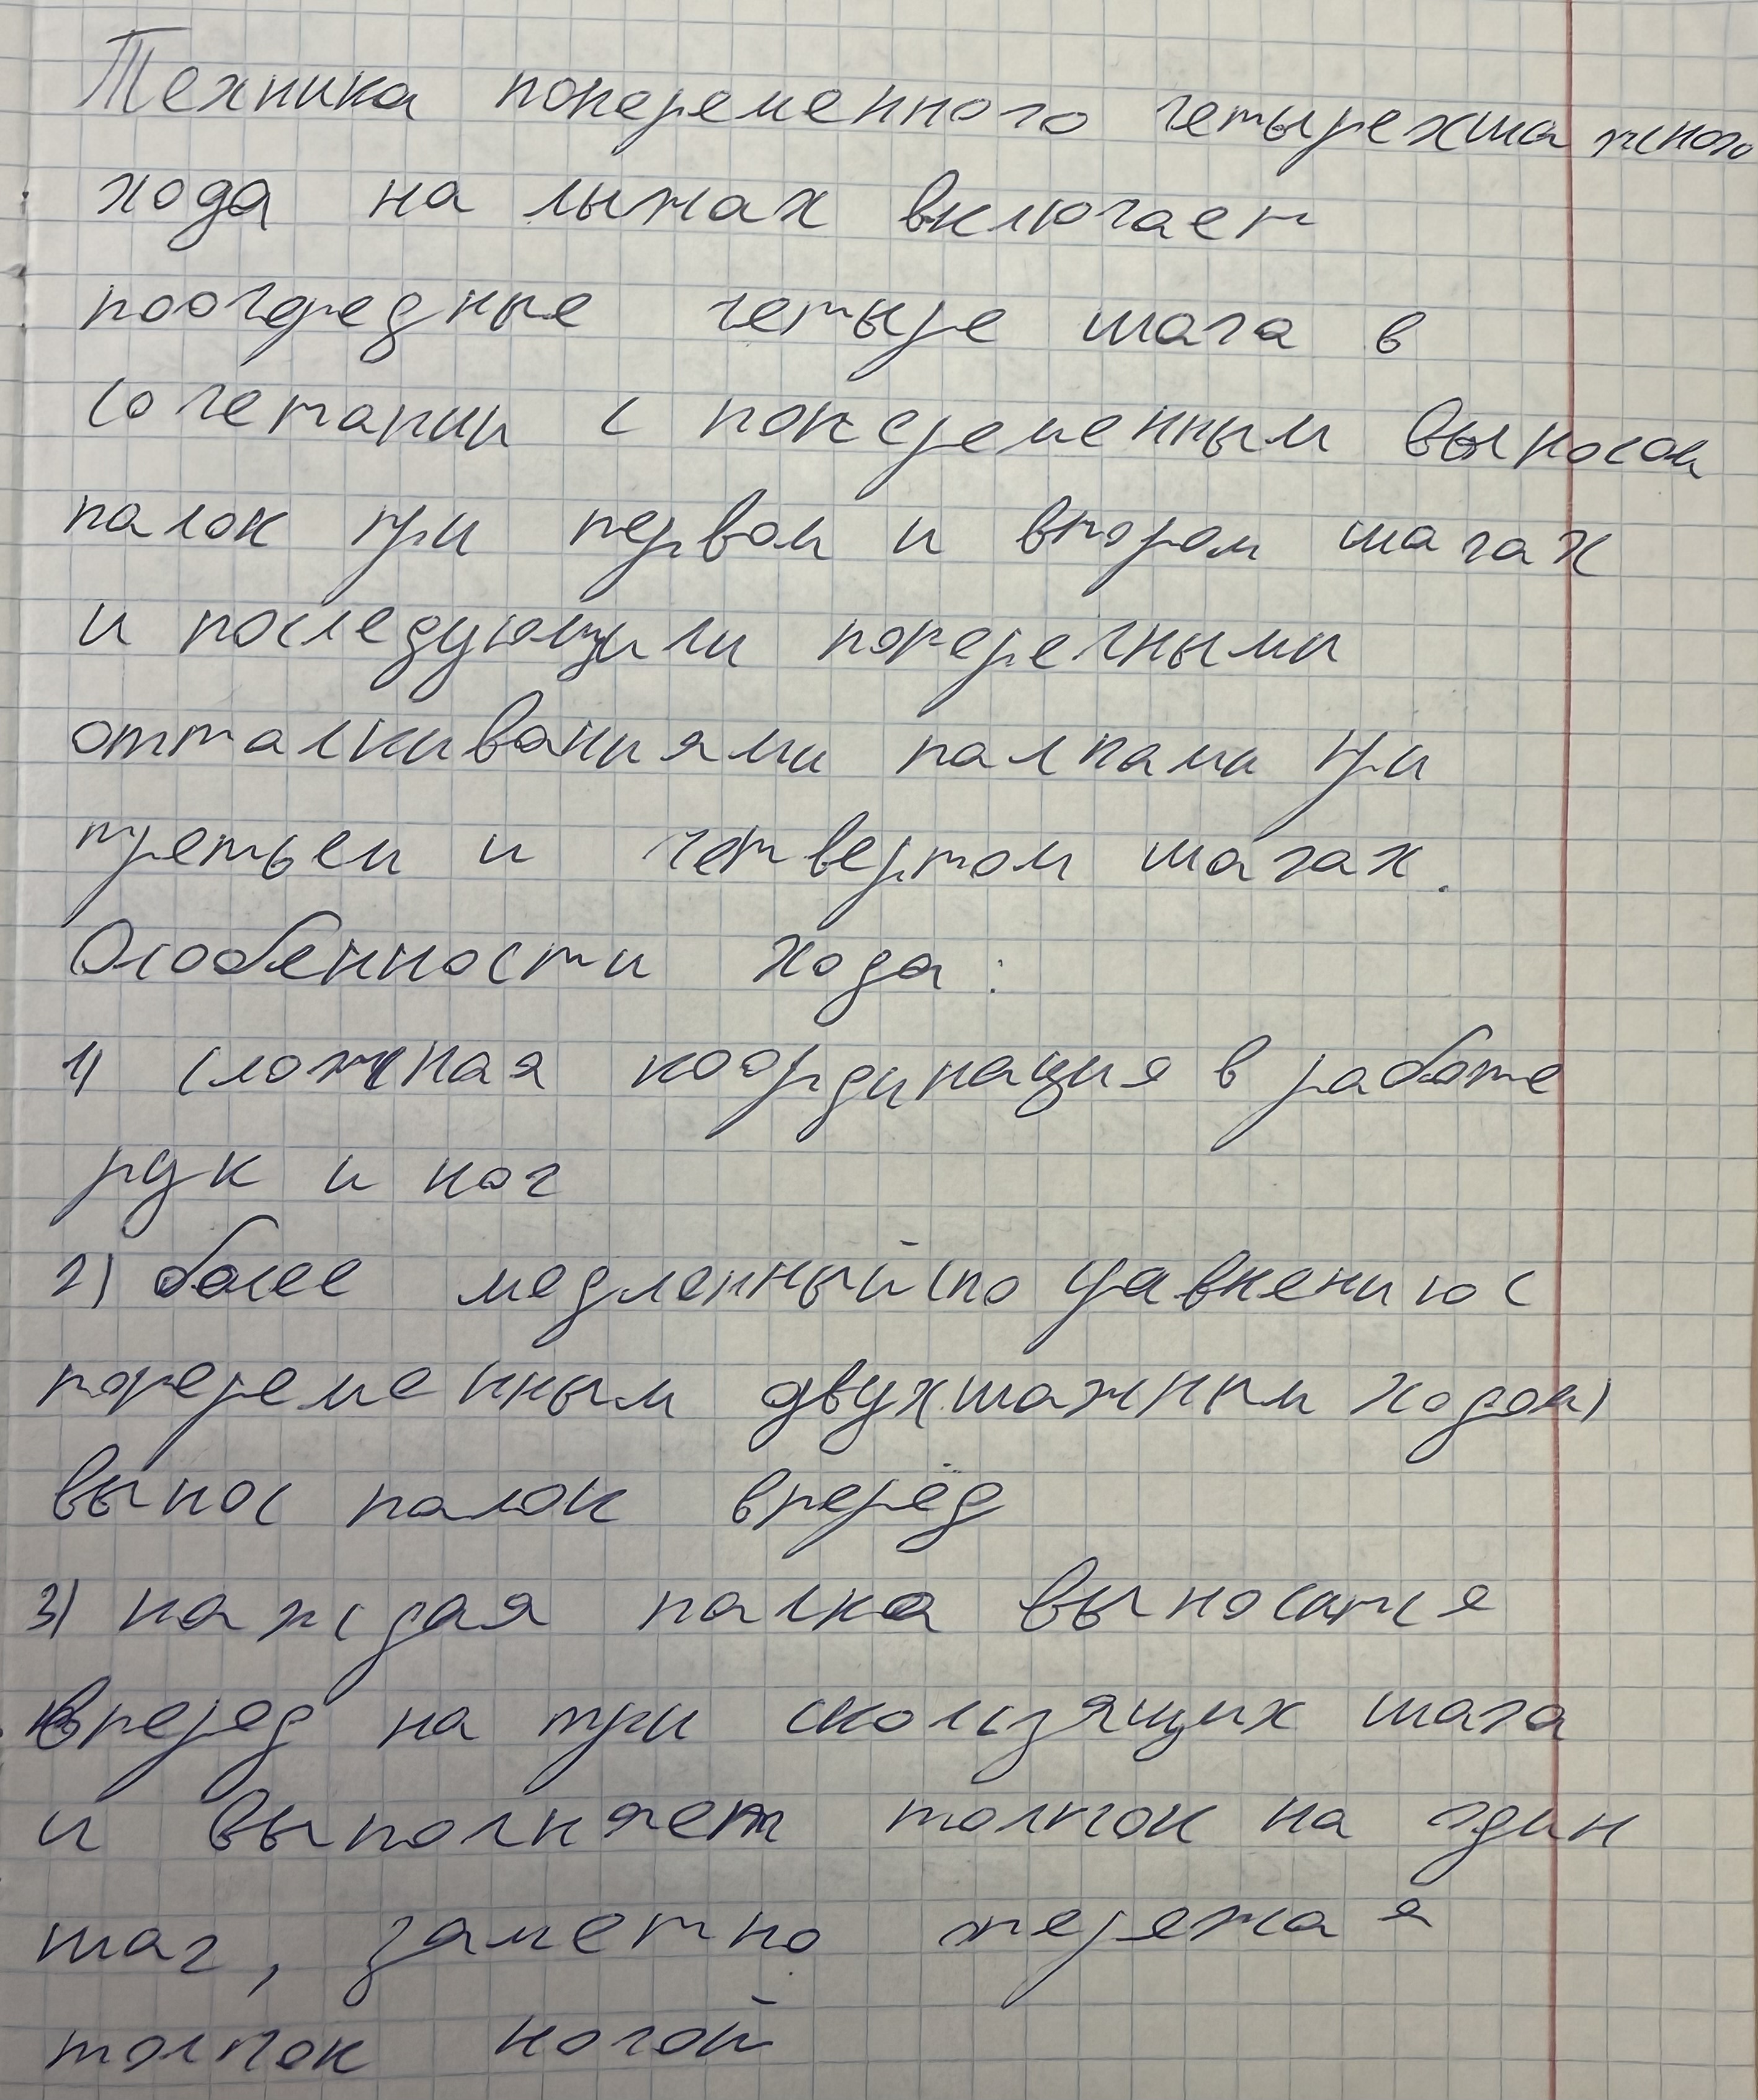 Техника попеременного четырехшажного
хода на лыжах включает
поочередные четыре шага в
сочетании с попеременным выносом
палок при первом и втором шагах
и последующими поперечными
отталкиваниями палками при
третьем и четвертом шагах.
Особенности хода:
1) сложная координация в работе
рук и ног
2) более медленный (по сравнению с
попеременным двухшажным ходом)
вынос палок вперёд
3) каждая палка выносится
вперед на три скользящих шага
и выполняет толчок на один
шаг, заметно
толчок ногой